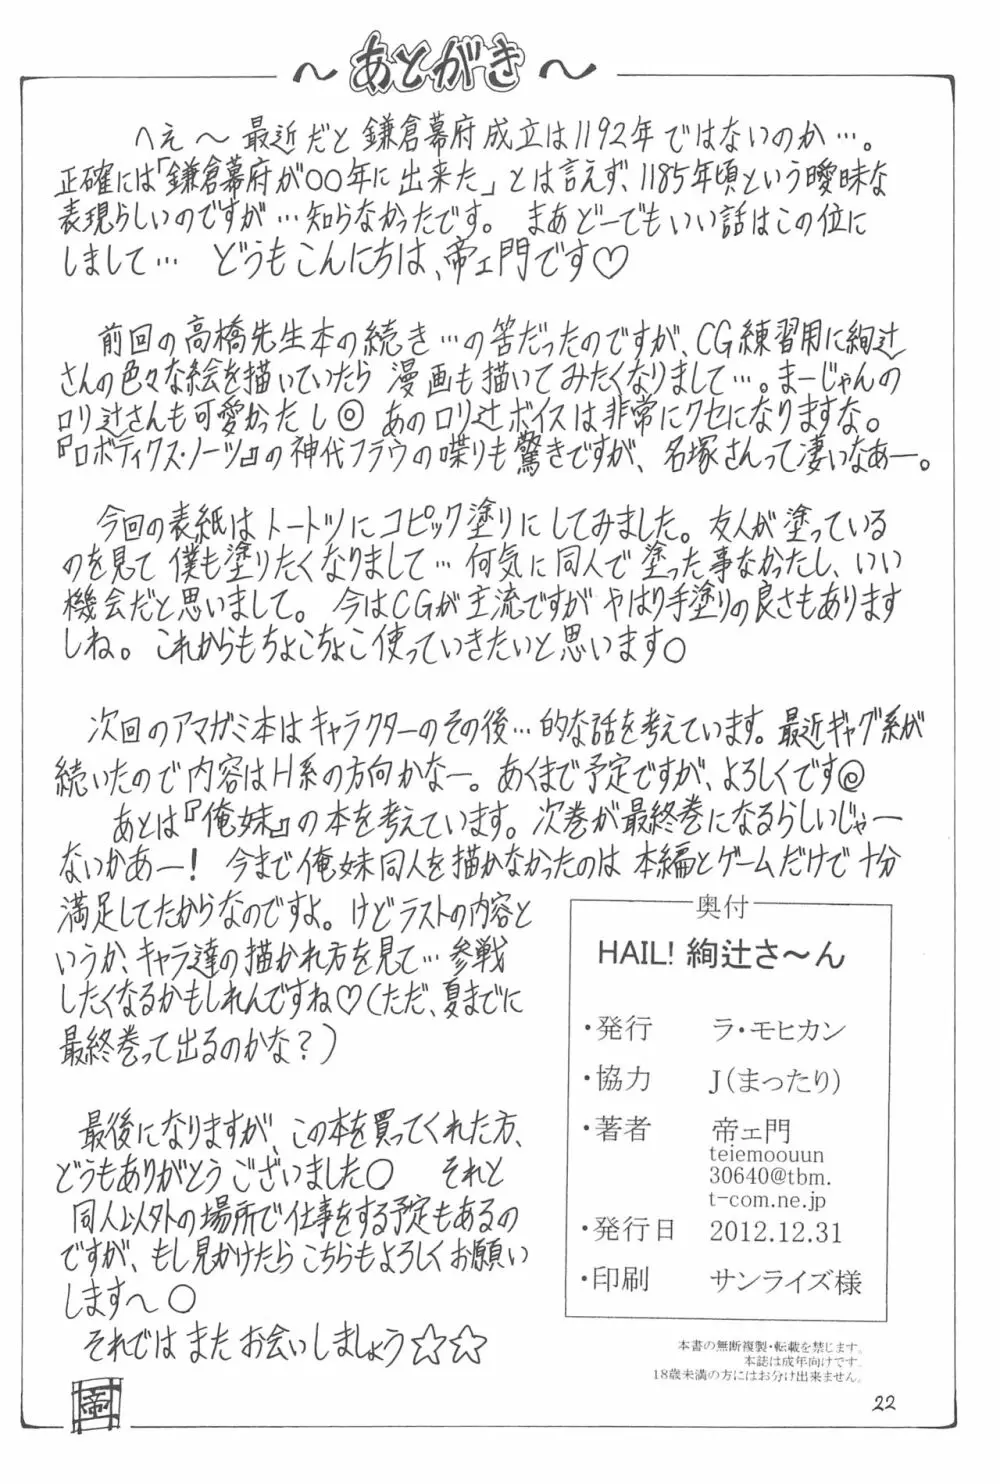 ～あとがき～
へえ～最近だと鎌倉幕府成立は1192年ではないのか…。
正確には「鎌倉幕府が〇〇年に出来た」とは言えず、1185年頃という曖昧な
表現らしいのですが…知らなかったです。まあどーでもいい話はこの位に
しまして…どうもこんにちは、帝ェ門です♡
前回の高橋先生本の続き…の筈だったのですが、CG練習用に絢辻
さんの色々な絵を描いていたら漫画も描いてみたくなりまして…。まーじゃんの
ロリ辻さんも可愛かったし◎あのロリ辻ボイスは非常にクセになりますな。
『ロボティクス・ノーツ』の神代フラウの喋りも驚きですが、名塚さんって凄いなあー。
今回の表紙はトートツにコピック塗りにしてみました。友人が塗っている
のを見て僕も塗りたくなりまして…何気に同人で塗った事なかったし、いい
機会だと思いまして。今はCGが主流ですがやはり手塗りの良さもあります
しね。これからもちょこちょこ使っていきたいと思います○
次回のアマガミ本はキャラクターのその後…的な話を考えています。最近ギャグ系が
続いたので内容はH系の方向かなー。あくまで予定ですが、よろしくです@
あとは『俺妹』の本を考えています。次巻が最終巻になるらしいじゃー
ないかあー!今まで俺妹同人を描かなかったのは本編とゲームだけで十分
満足してたからなのですよ。けどラストの内容と
いうか、キャラ達の描かれ方を見て…参戦
したくなるかもしれんですね♡(ただ、夏までに
最終巻って出るのかな?)
最後になりますが、この本を買ってくれた方、
どうもありがとうございました○それと
同人以外の場所で仕事をする予定もあるの
ですが、もし見かけたらこちらもよろしくお願い
します～○
それではまたお会いしましょう☆☆
帝
奥付
HAIL! 絢辻さ～ん
・発行 ラ・モヒカン
・協力 J(まったり)
・著者 帝ェ門
teiemoouun
30640@tbm.
t-com.ne.jp
・発行日 2012.12.31
・印刷 サンライズ様
本書の無断複製・転載を禁じます。
本誌は成年向けです。
18歳未満の方にはお分け出来ません。
22